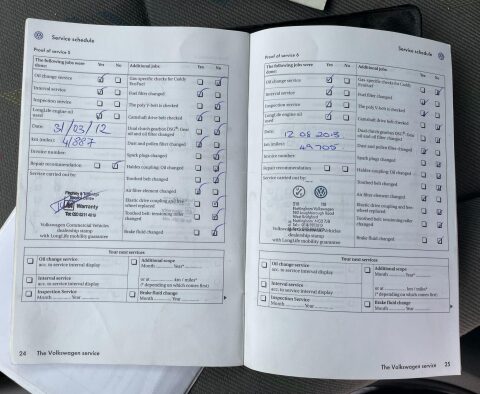 Service schedule
Proof of service 5
The following jobs were done: Yes No
Oil change service
Interval service
Inspection service
LongLife engine oil used
Date: 31/03/12
km (miles):
Service number:
Repair recommendation
Service carried out by:
Warranty
Volkswagen Commercial Vehicles
dealership stamp
with LongLife mobility guarantee
Additional jobs: Yes No
Gas specific checks for Caddy EcoFuel
Fuel filter changed
The poly V-belt is checked
Camshaft drive belt checked
Dual clutch gearbox DSG®: Gear oil and oil filter changed
Dust and pollen filter changed
Spark plugs changed
Haldex coupling: Oil changed
Toothed belt changed
Air filter element changed
Elastic drive coupling and free wheel replaced
Toothed belt tensioning roller changed
Brake fluid changed
Your next services
Oil change service
acc. to service interval display
Interval service
acc. to service interval display
Inspection Service
Month Year
Additional scope
Month Year*
or at km / miles*
(* depending on which comes first)
Brake fluid change
Month Year
24 The Volkswagen service
Service schedule
Proof of service 6
The following jobs were done: Yes No
Oil change service
Interval service
Inspection service
LongLife engine oil used
Date: 12 08 2013
km (miles): 49705
Service number:
Repair recommendation
Service carried out by:
dealership stamp
with LongLife mobility guarantee
Additional jobs: Yes No
Gas specific checks for Caddy EcoFuel
Fuel filter changed
The poly V-belt is checked
Camshaft drive belt checked
Dual clutch gearbox DSG®: Gear oil and oil filter changed
Dust and pollen filter changed
Spark plugs changed
Haldex coupling: Oil changed
Toothed belt changed
Air filter element changed
Elastic drive coupling and free wheel replaced
Toothed belt tensioning roller changed
Brake fluid changed
Your next services
Oil change service
acc. to service interval display
Interval service
acc. to service interval display
Inspection Service
Month Year
Additional scope
Month Year*
or at km / miles*
(* depending on which comes first)
Brake fluid change
Month Year
The Volkswagen service 25